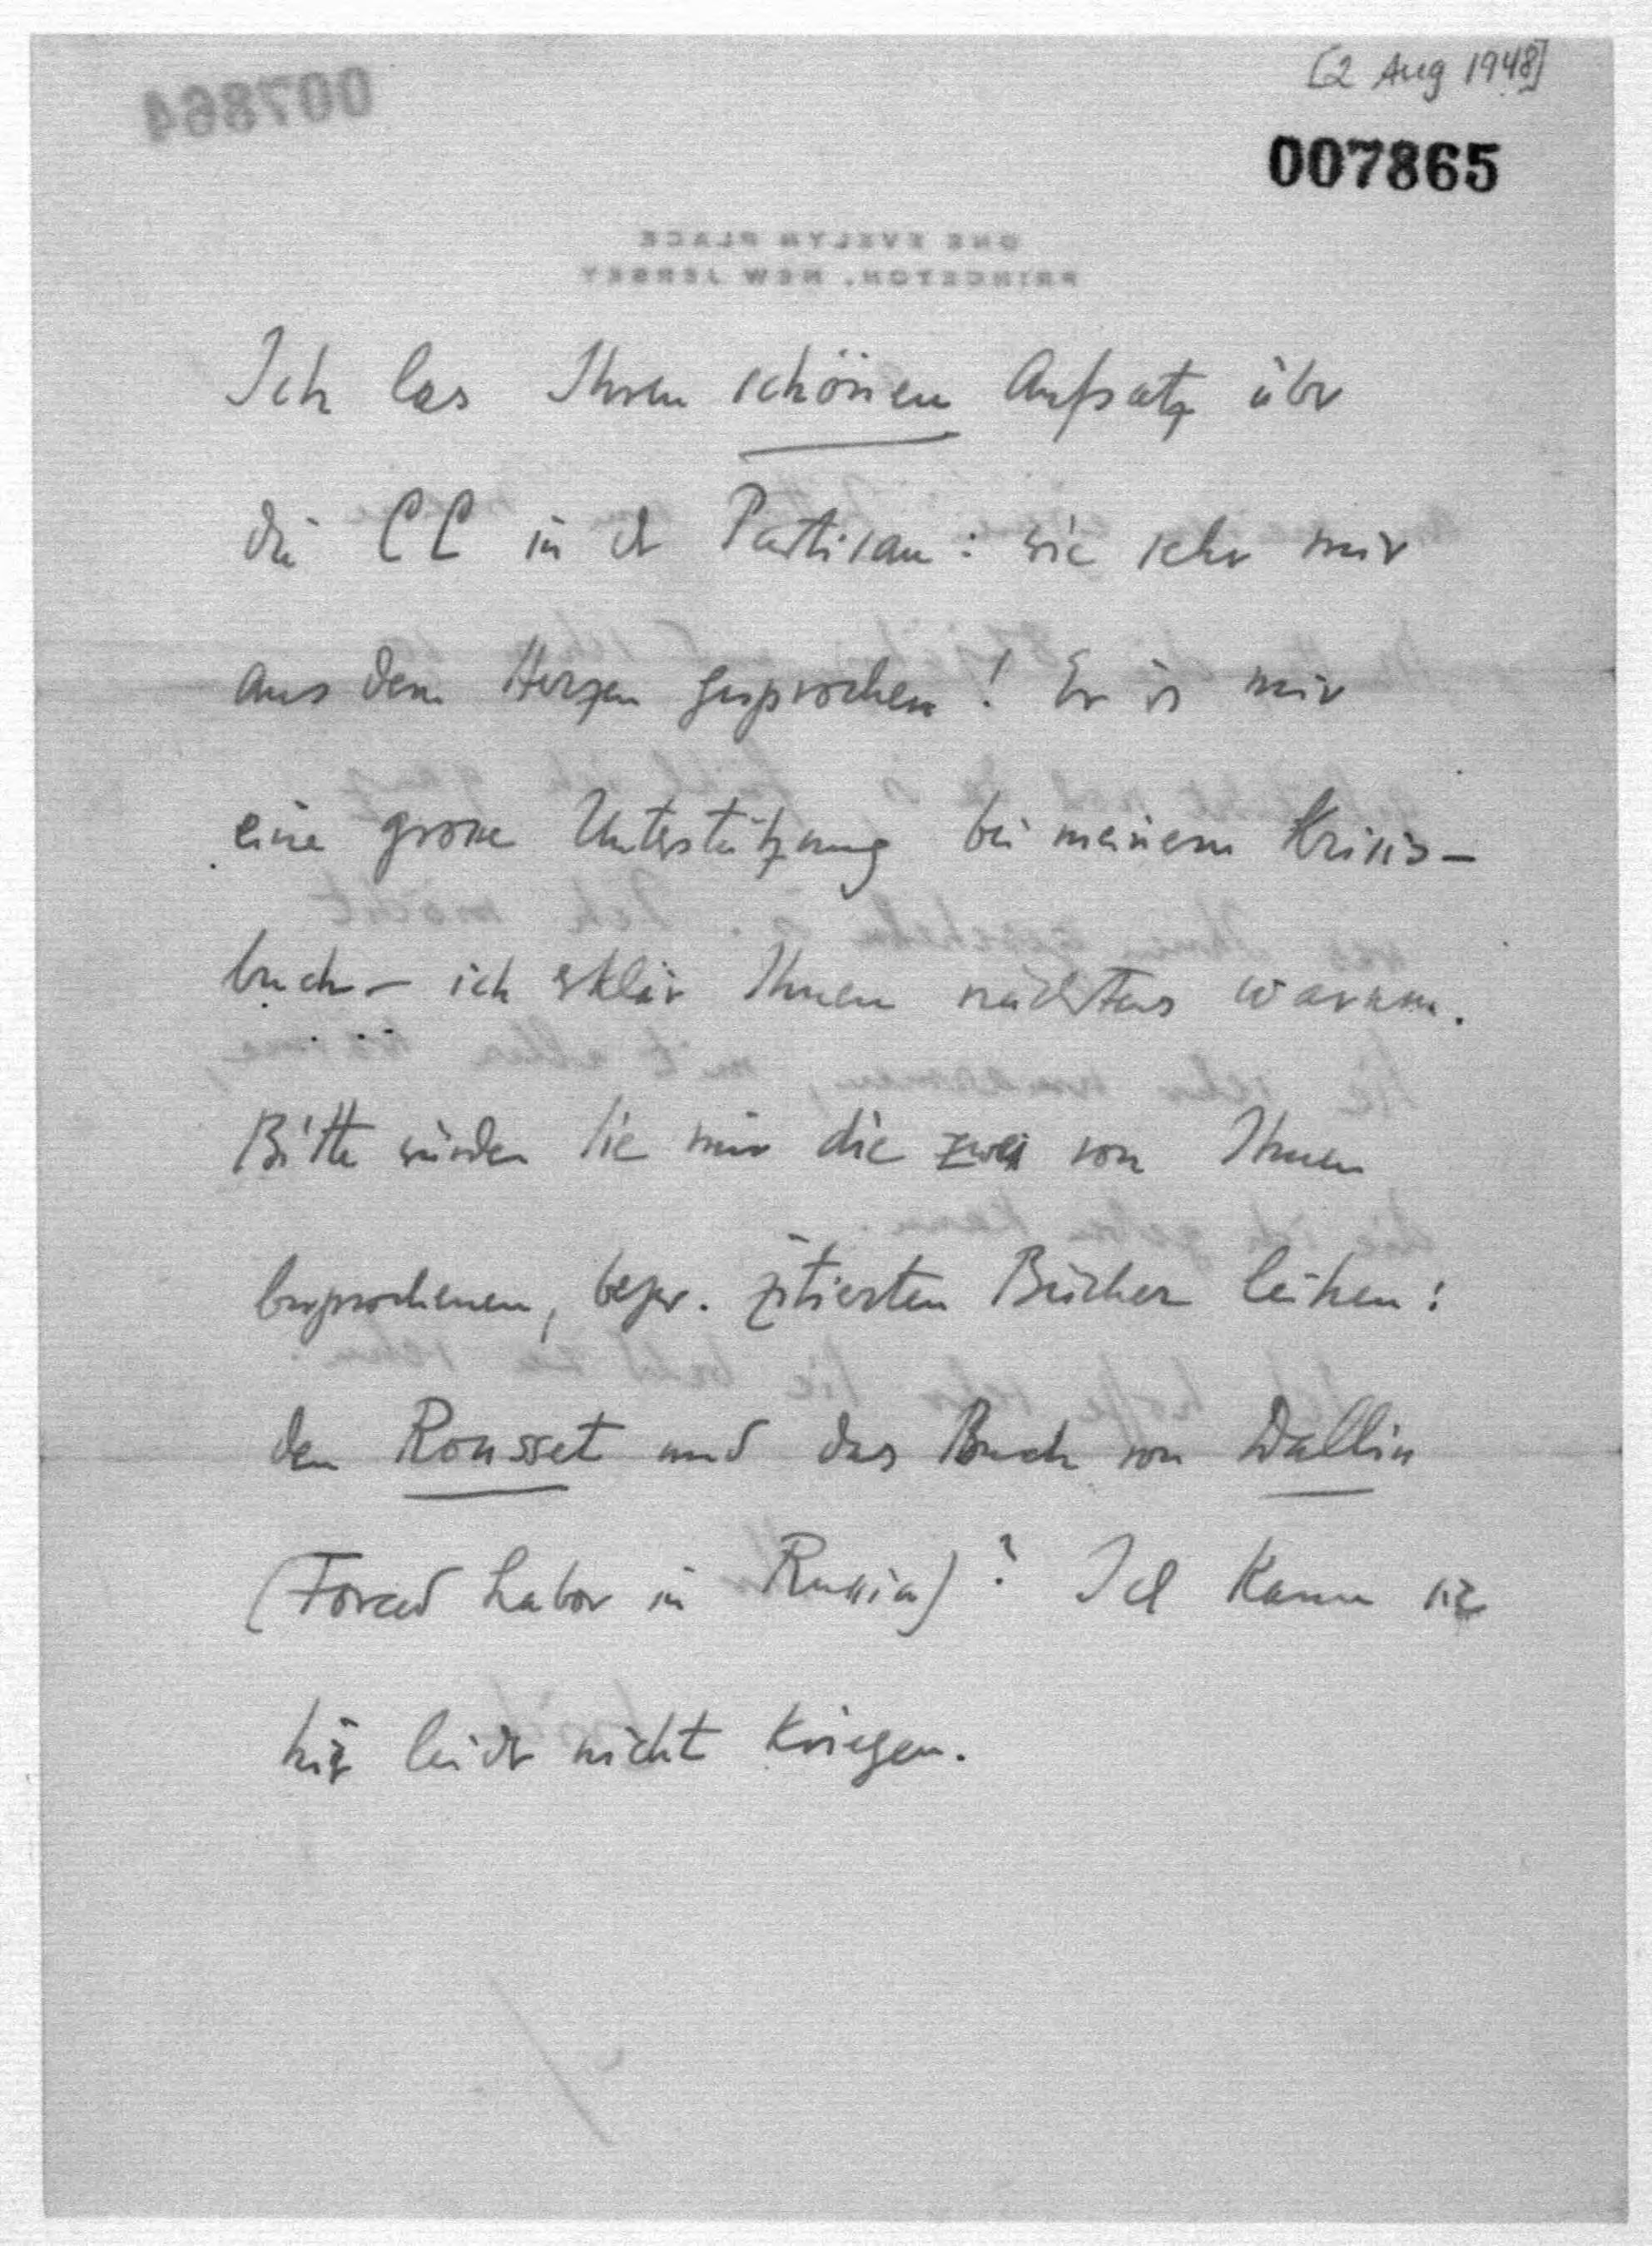 [2 Aug 1948]
007864
007865
ONE EVELYN PLACE
PRINCETON, NEW JERSEY
Ich las Ihren schönen Aufsatz über
die CC in der Partisan: wie sehr mir
aus dem Herzen gesprochen! Er is mir
eine grosse Unterstützung bei meinem Krisis-
buch – ich erklär Ihnen nächstens warum.
Bitte würden Sie mir die zwei von Ihnen
besprochenen, bezw. zitierten Bücher leihen:
den Rousset und das Buch von Dallin
(Forced Labor in Russia)? Ich kann sie
hier leider nicht kriegen.